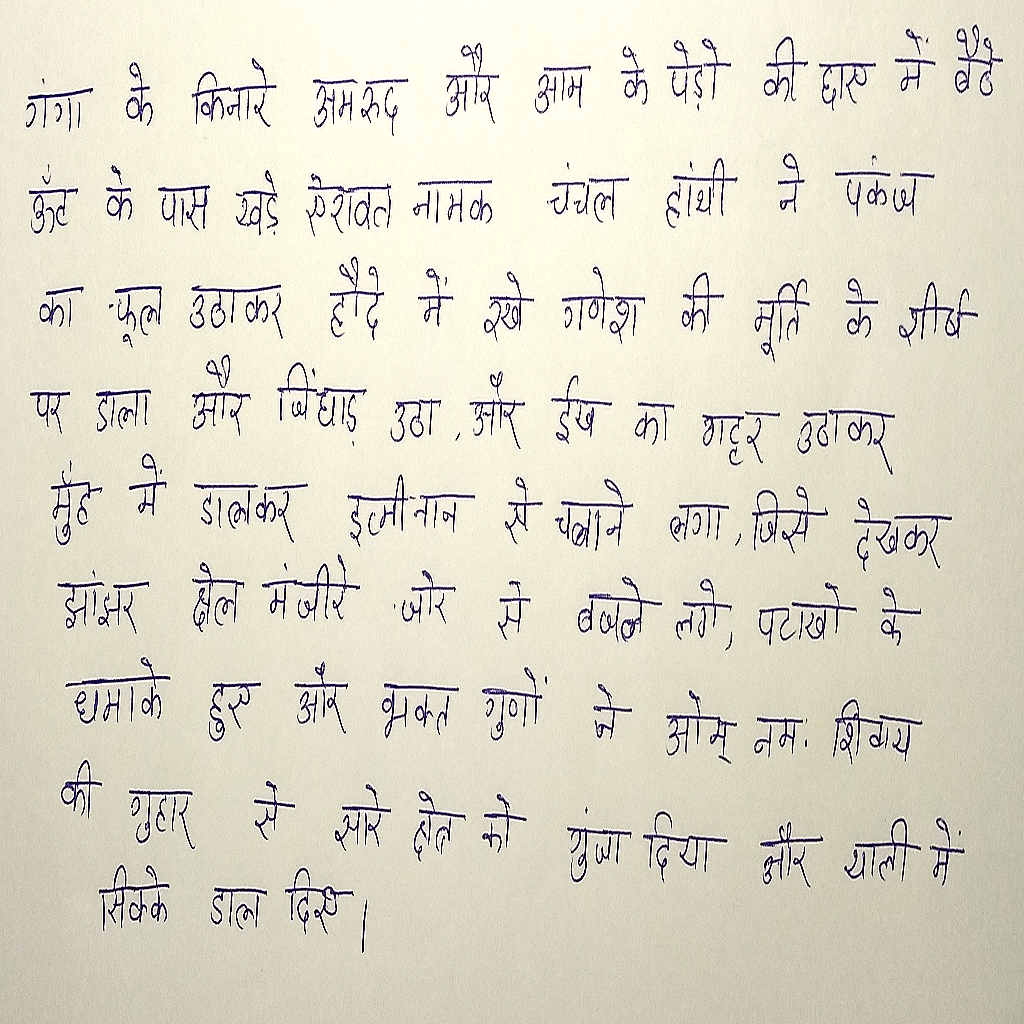 गंगा के किनारे अमरुद और आम के पेड़ो की छाए में बैठे
ऊँट के पास खड़े ऐरावत नामक चंचल हांथी ने पंकज
का फूल उठाकर हौदे में रखे गणेश की मूर्ति के शीर्ष
पर डाला और चिंघाड़ उठा, और ईख का गट्टर उठाकर
मुँह में डालकर इत्मीनान से चबाने लगा, जिसे देखकर
झांझर ढोल मंजीरे जोर से बजने लगे, पटाखो के
धमाके हुए और भक्त गुणों ने ओम् नम: शिवाय
की गुहार से सारे क्षेत्र को गुंजा दिया और थाली में
सिक्के डाल दिए।